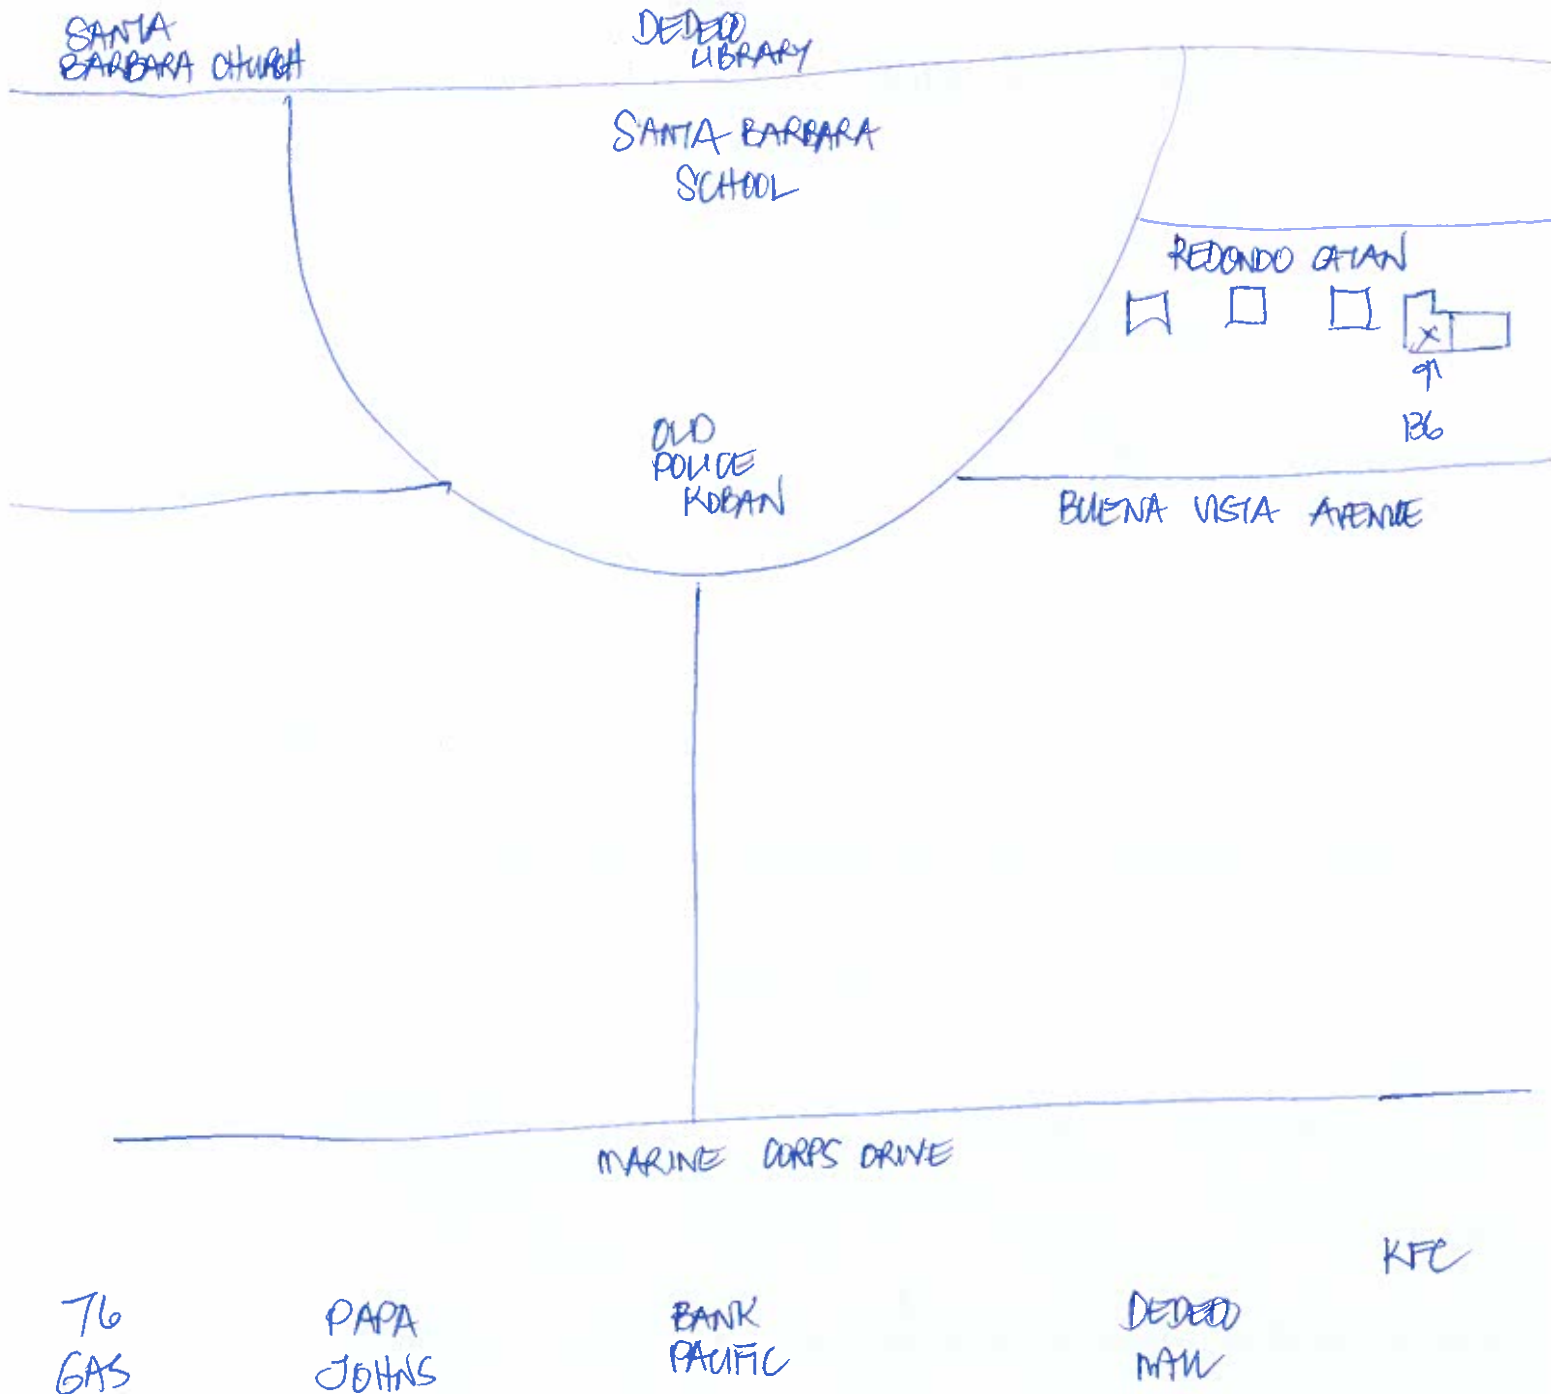 SANTA
BARBARA CHURCH
DEDEDO
LIBRARY
SANTA BARBARA
SCHOOL
REDONDO
136
OLD
POLICE
KOBAN
BUENA VISTA AVENUE
MARINE CORPS DRIVE
KFC
76
GAS
PAPA
JOHNS
BANK
PACIFIC
DEDEDO
MALL